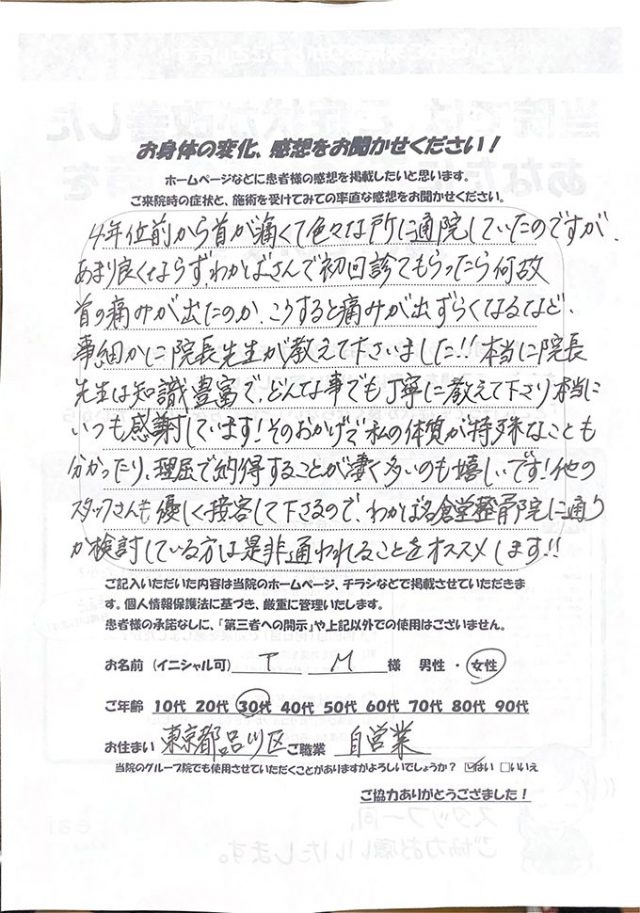 お身体の変化、感想をお聞かせください!
ホームページなどに患者様の感想を掲載したいと思います。
ご来院時の症状と、施術を受けてみての率直な感想をお聞かせください。
4年位前から首が痛くて色々な所に通院していたのですが、
あまり良くならず、わかばさんで初回診てもらったら何故
首の痛みが出たのか、こうすると痛みが出ずらくなるなど、
事細かに院長先生が教えて下さいました!!本当に院長
先生は知識豊富で、どんな事でも丁寧に教えて下さり本当に
いつも感謝しています!そのおかげで私の体質が特殊なことも
分かったり、理屈で納得することが凄く多いのも嬉しいです!他の
スタッフさんも優しく接客して下さるので、わかば名倉堂整骨院に通う
か検討している方は是非通われることをオススメします!!
ご記入いただいた内容は当院のホームページ、チラシなどで掲載させていただきま
す。個人情報保護法に基づき、厳重に管理いたします。
患者様の承諾なしに、「第三者への開示」や上記以外での使用はございません。
お名前(イニシャル可) T M 様 男性・女性
ご年齢 10代 20代 30代 40代 50代 60代 70代 80代 90代
お住まい 東京都品川区 ご職業 自営業
当院のグループ院でも使用させていただくことがありますがよろしいでしょうか? ☑はい □いいえ
ご協力ありがとうござました!
スタッフ一同、
ご協力お願いいたします。